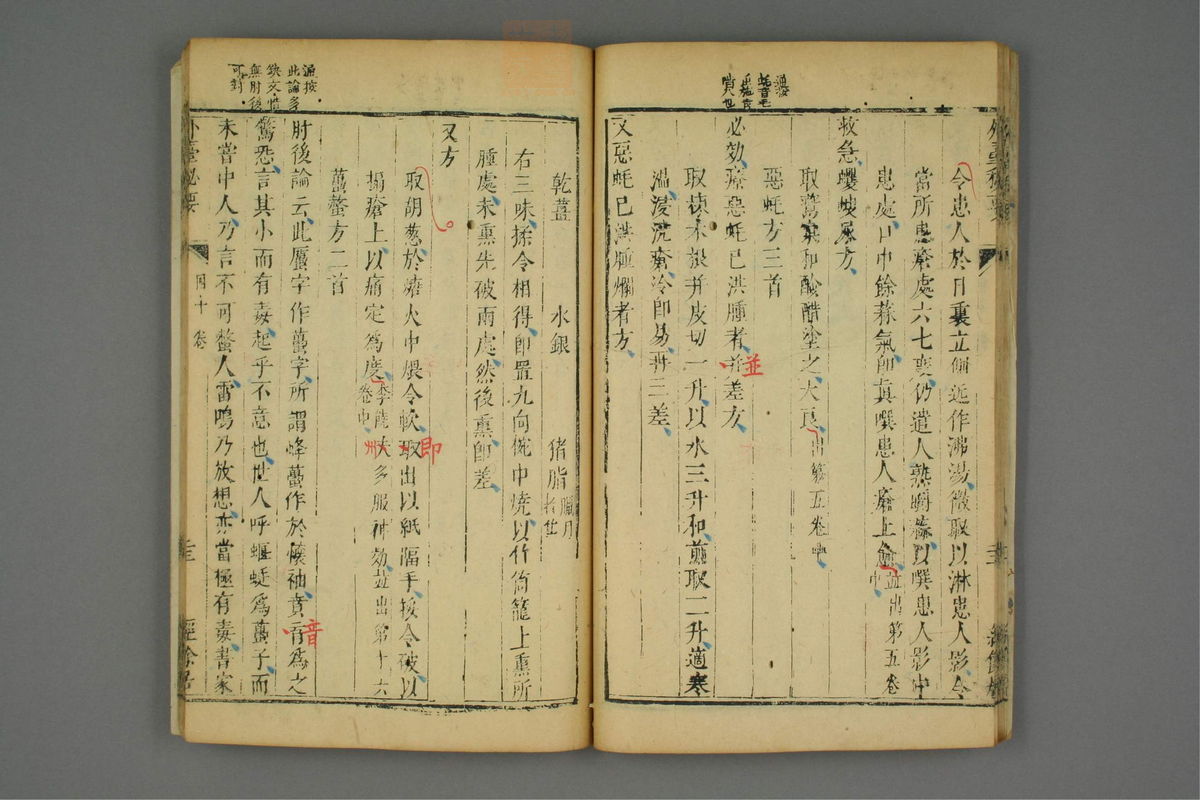 通按
蚝音毛
毛蟲有
螫人也
令患人於日裏立側近作沸湯微取以淋患人影令
當所患瘡處六七遍仍遣人熟嚼蒜以噀患人影中
患處口中餘蒜氣即真噀患人瘡上愈並出第五卷
中
救急蠼螋尿方
取鷰窠和酸醋塗之大良出第五卷中
惡蚝方三首
必効療惡蚝已洪腫者并差方
並
取棘木根并皮切一升以水三升和煎取二升適寒
溫浸洗瘡冷即易再三差
又惡蚝已洪腫爛者方
乾薑 水銀 猪脂臘月
者佳
右三味揉令相得即置九向椀中燒以竹筒籠上熏所
腫處未熏先破兩處然後熏即差
又方
取胡葱於塘火中煨令軟取出以紙隔手挼令破以
即
搨瘡上以痛定為度李饒
州
大多服神効並出第十六
卷中
薑螫方二首
肘後論云此蠆字作薑字所謂蜂薑作於懷袖賁育為之
音
驚恐言其小而有毒起乎不意也世人呼蝘蜓為薑子而
未嘗中人乃言不可螫人雷鳴乃放想亦當極有毒書家
通按
此論多
缺文惜
無肘後
可對
外臺秘要
四十卷
經餘居